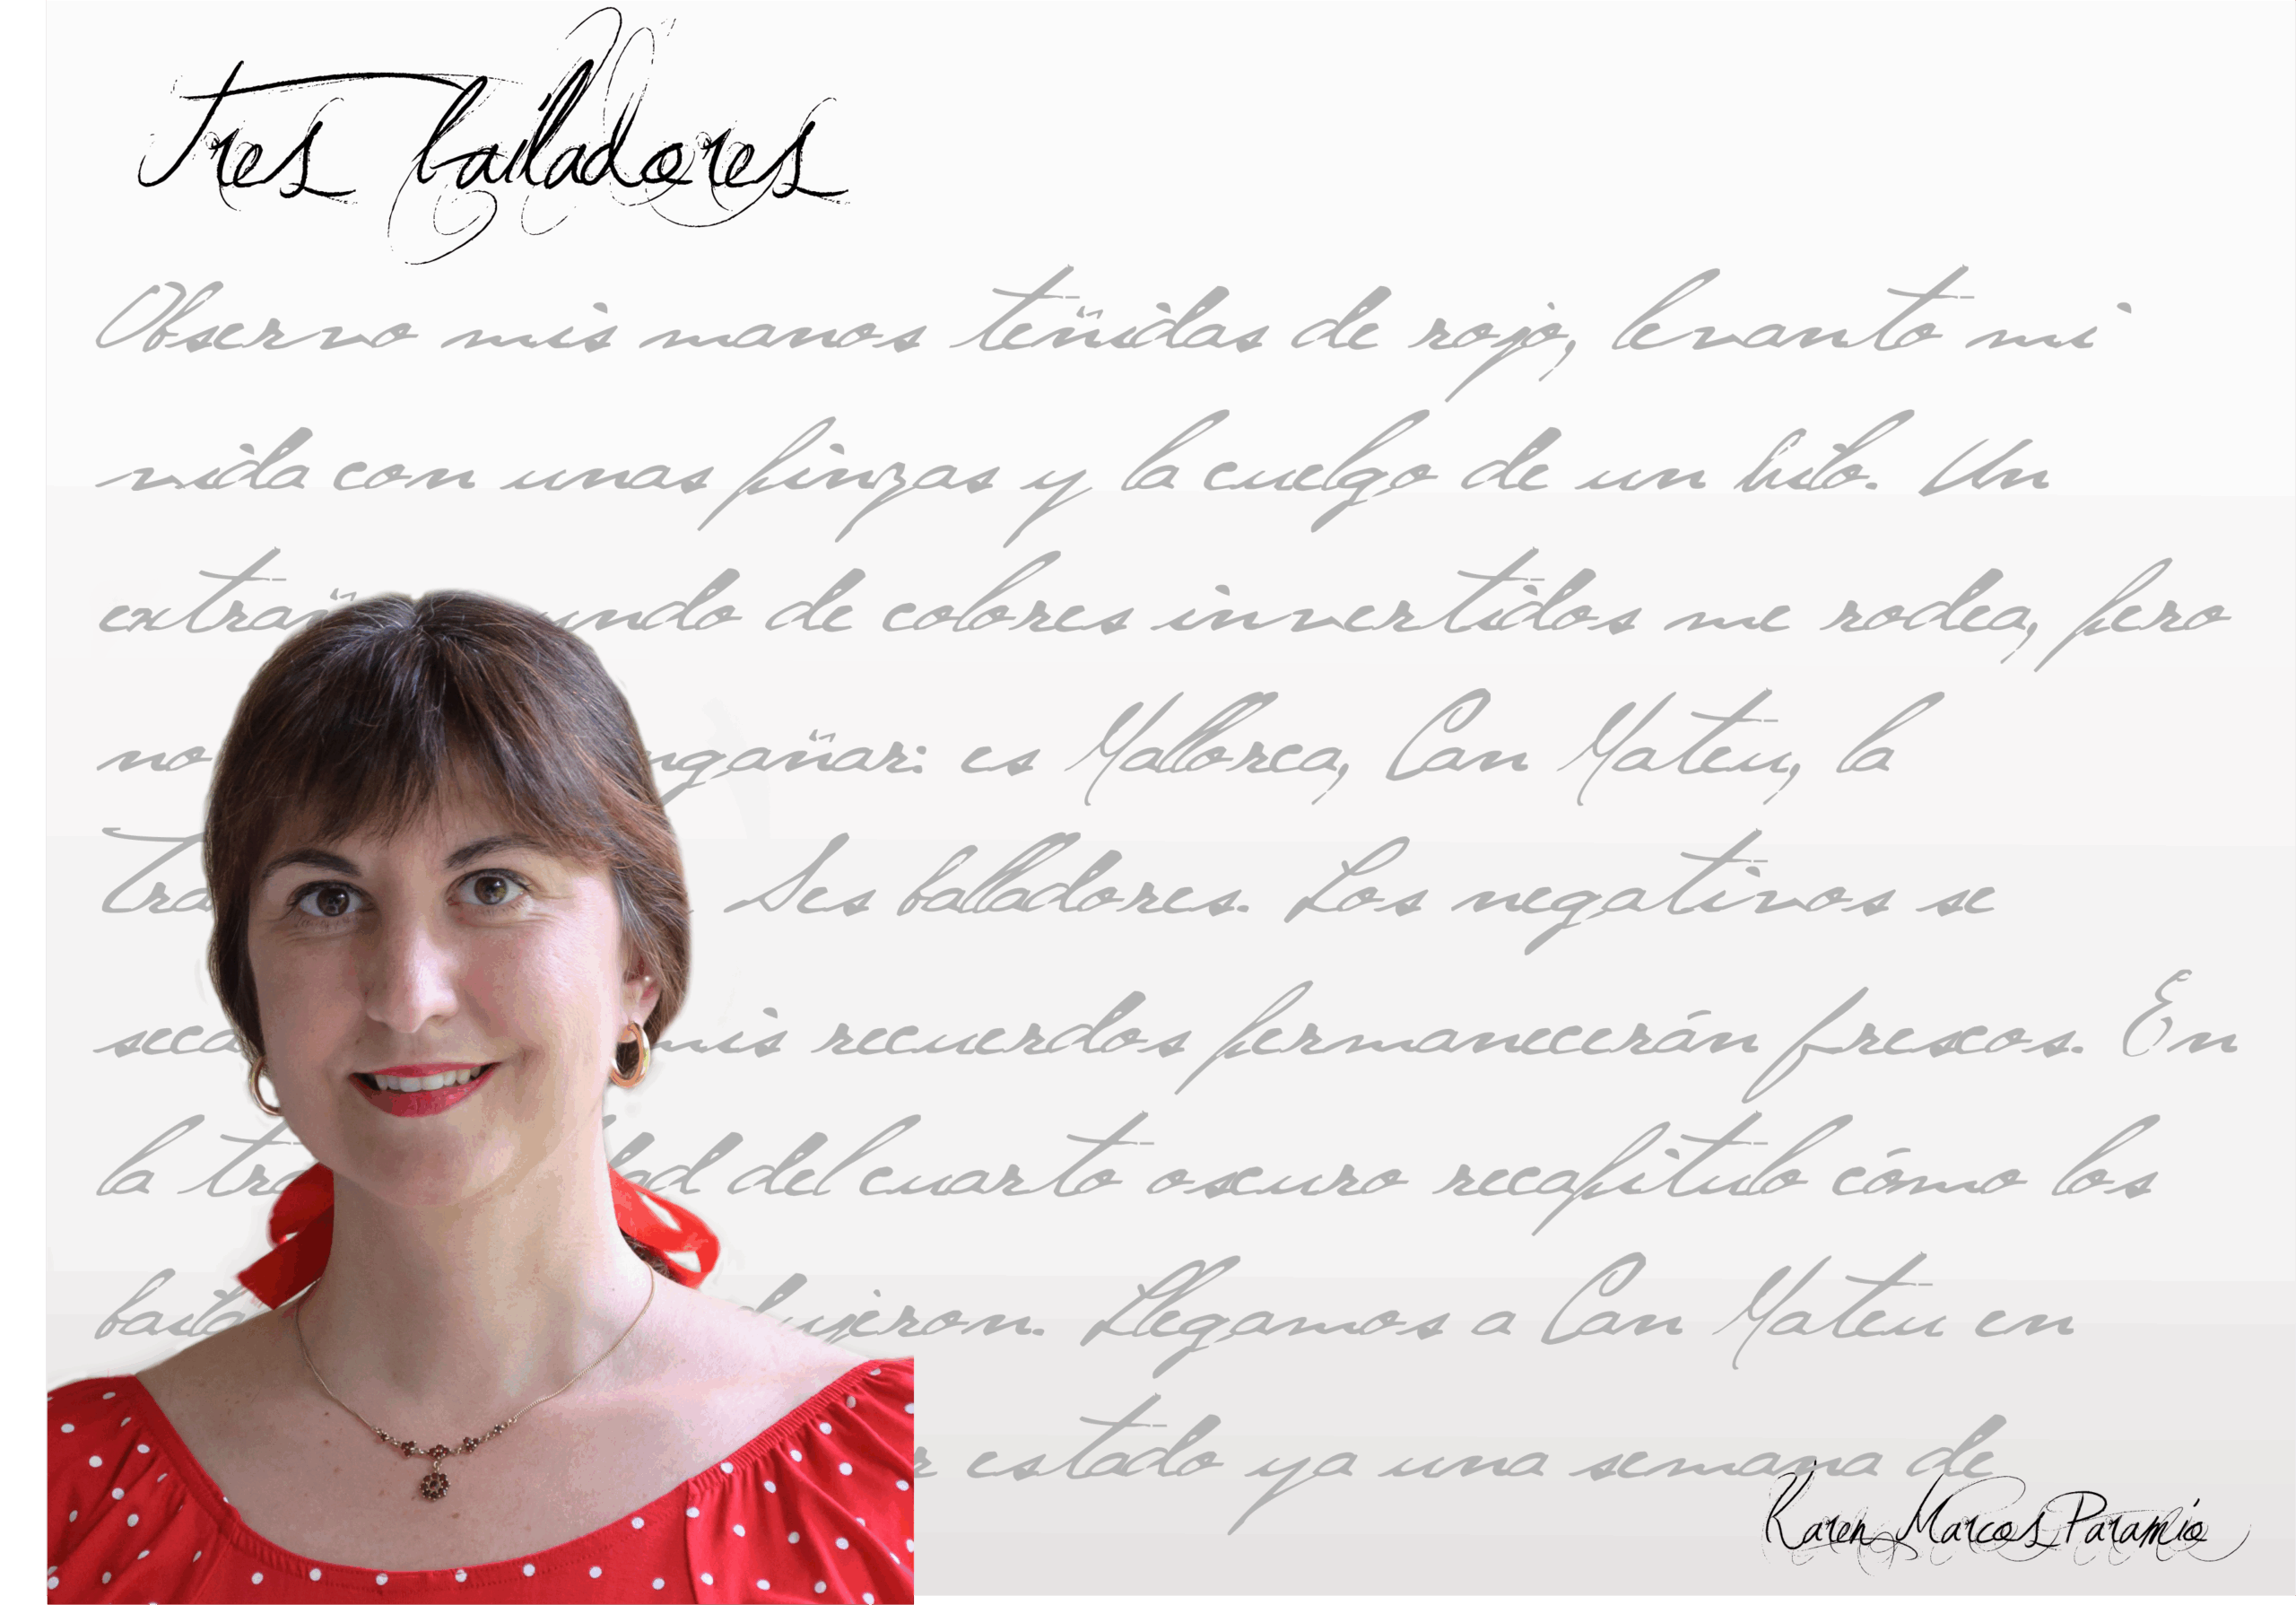 Tres bailadores
Observo mis manos teñidas de rojo, levanto mi
vida con unas pinzas y la cuelgo de un hilo. Un
extrañ undo de colores invertidos me rodea, pero
no ngañar: es Mallorca, Can Mateu, la
Tra Ses balladores. Los negativos se
seca mis recuerdos permanecerán frescos. En
la tra dad del cuarto oscuro recapitulo cómo los
baila dujeron. Llegamos a Can Mateu en
r estado ya una semana de
Karen Marcos Paramio